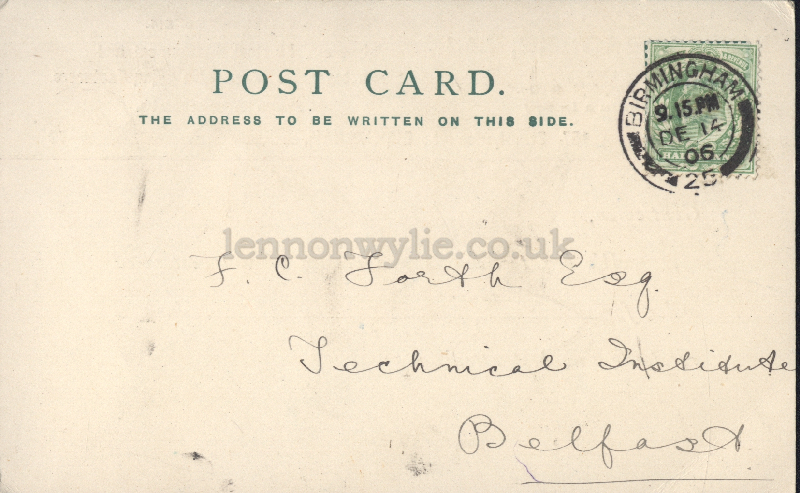 POST CARD.
THE ADDRESS TO BE WRITTEN ON THIS SIDE.
BIRMINGHAM
9.15.PM
DE 14
06
25
lennonwylie.co.uk
F. C. Forth Esq.
Technical Institute
Belfast